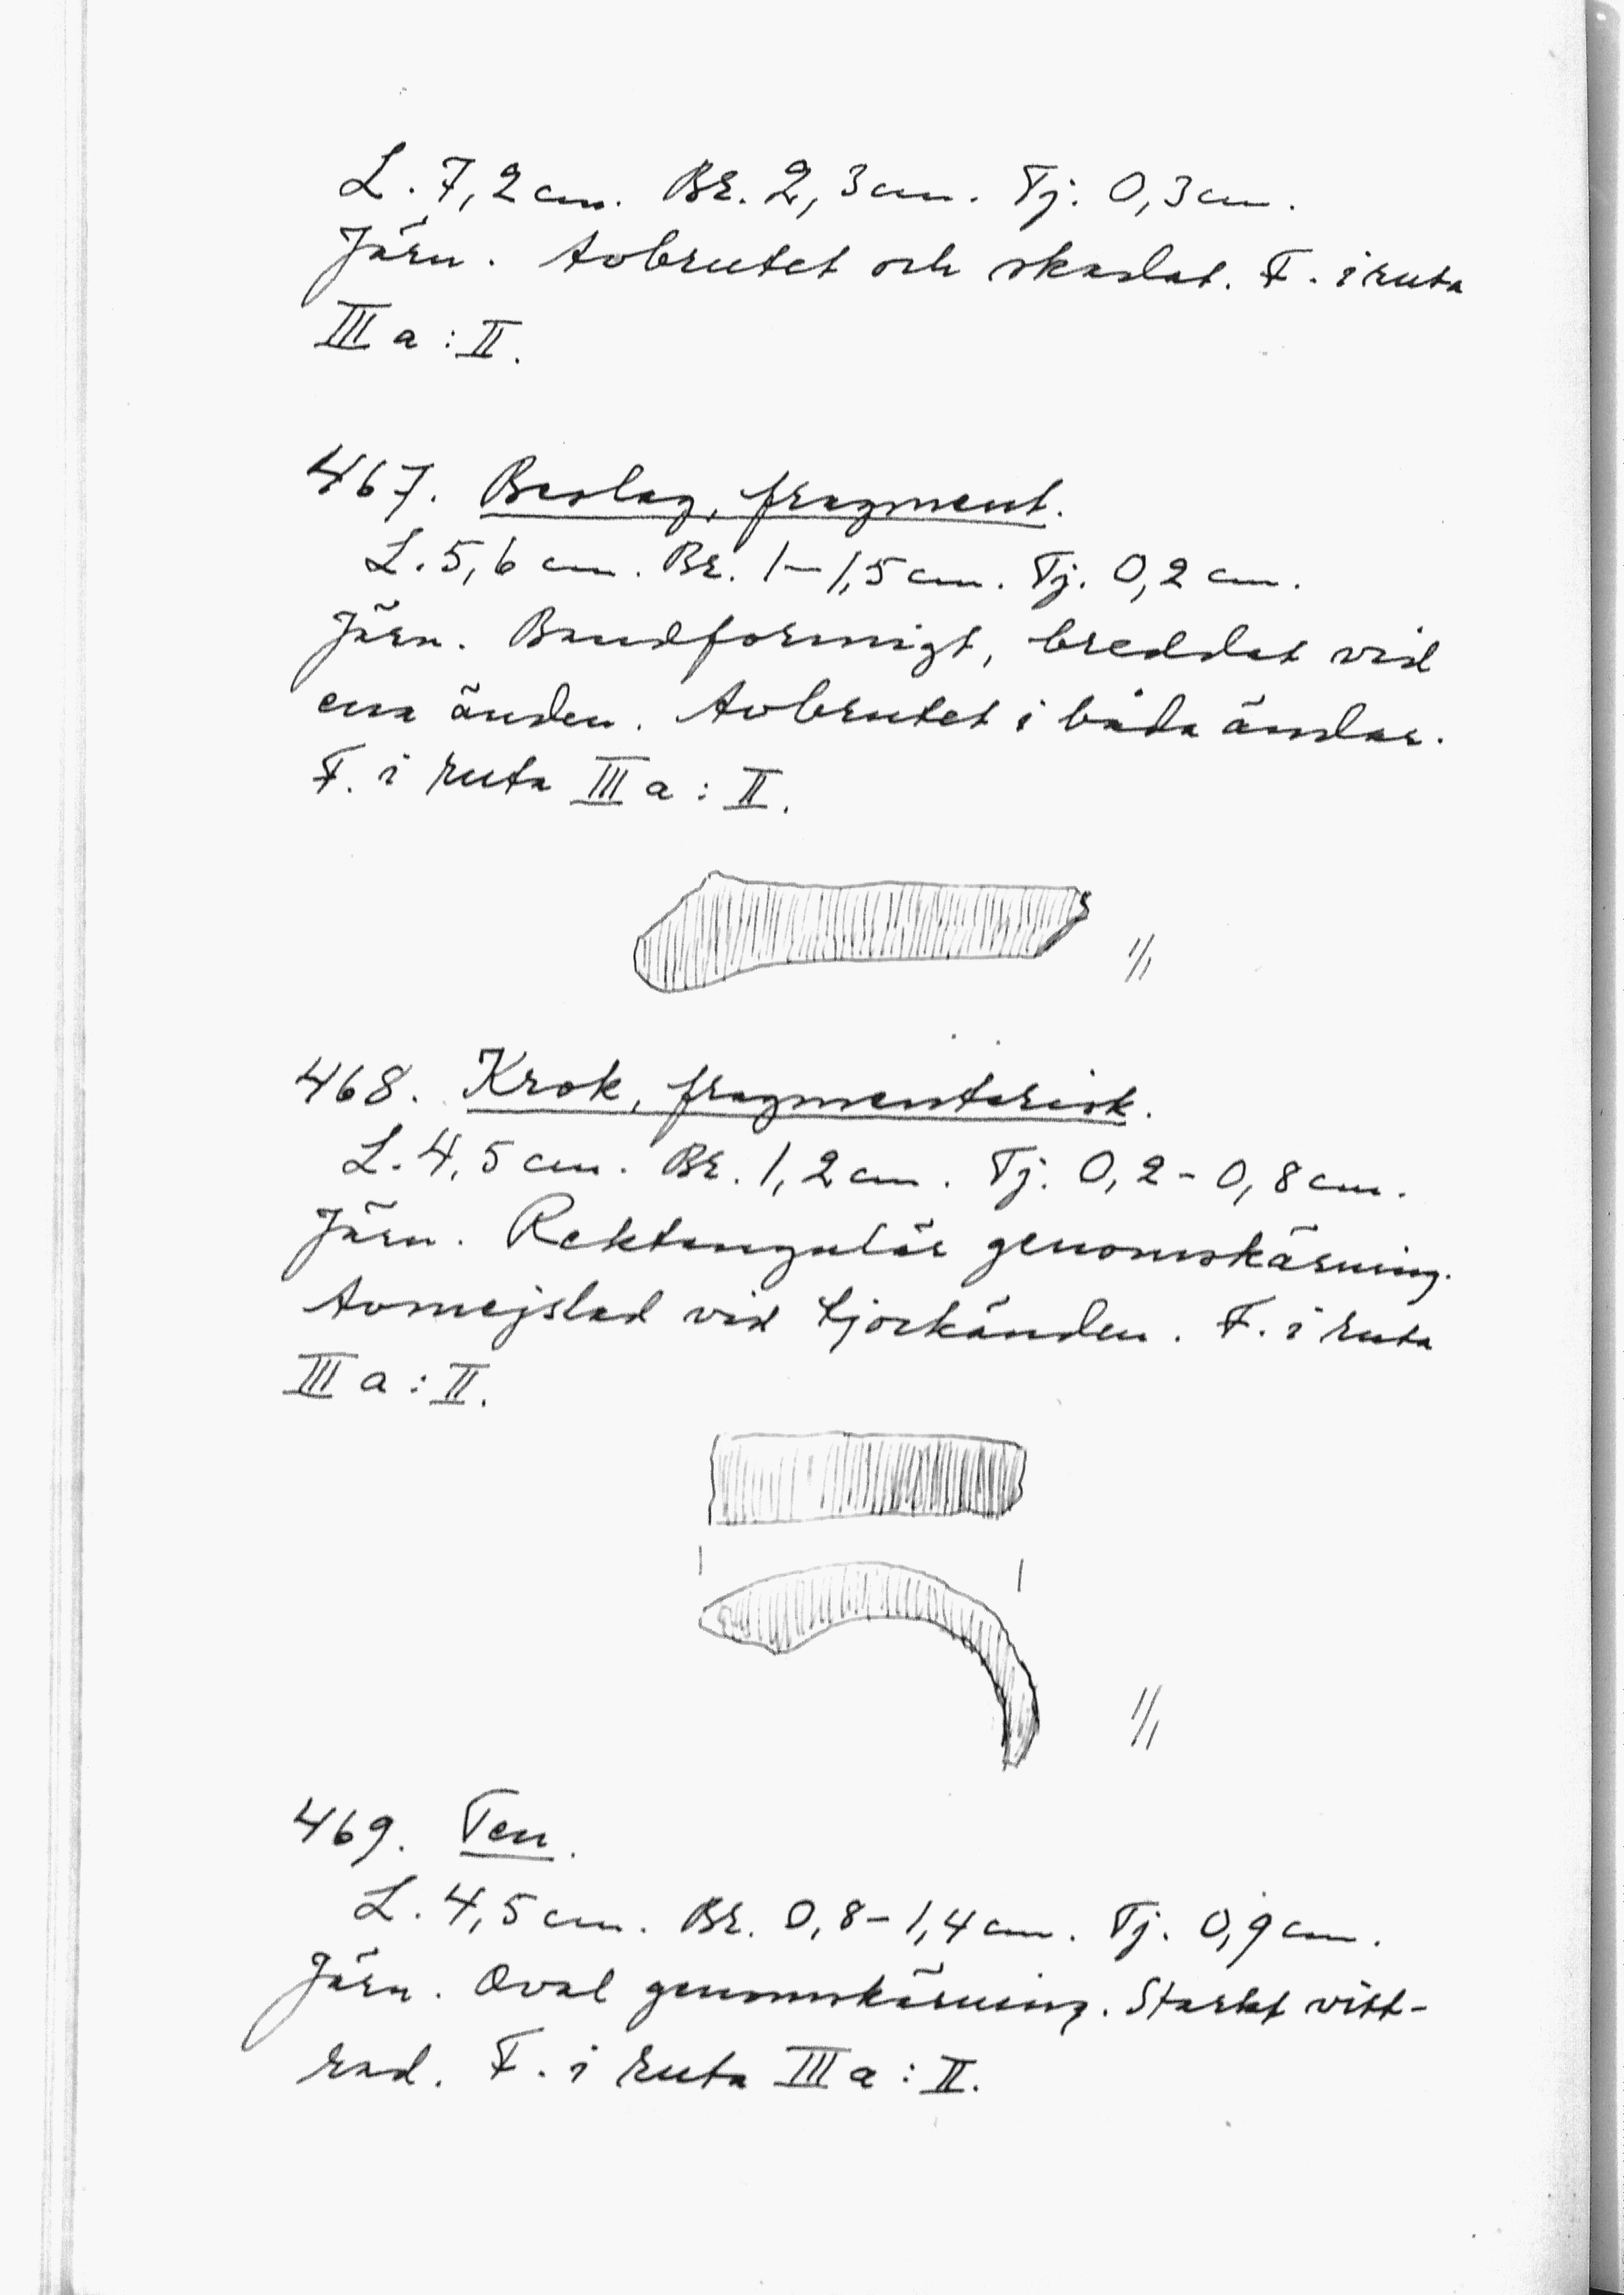 L. 7,2 cm. Br. 2,3 cm. Tj. 0,3 cm.
Järn. Avbrutet och skadat. F. i ruta
III a : II.
467. Beslag, fragment.
L. 5,6 cm. Br. 1–1,5 cm. Tj. 0,2 cm.
Järn. Bandformigt, breddat vid
ena änden. Avbrutet i båda ändar.
F. i ruta III a : II.
1/1
468. Krok, fragmentarisk.
L. 4,5 cm. Br. 1,2 cm. Tj. 0,2 - 0,8 cm.
Järn. Rektangulär genomskärning.
Avmejslad vid tjockänden. F. i ruta
III a : II.
1/1
469. Ten.
L. 4,5 cm. Br. 0,8 - 1,4 cm. Tj. 0,9 cm.
Järn. Oval genomskärning. Starkt vitt-
rad. F. i ruta III a : II.